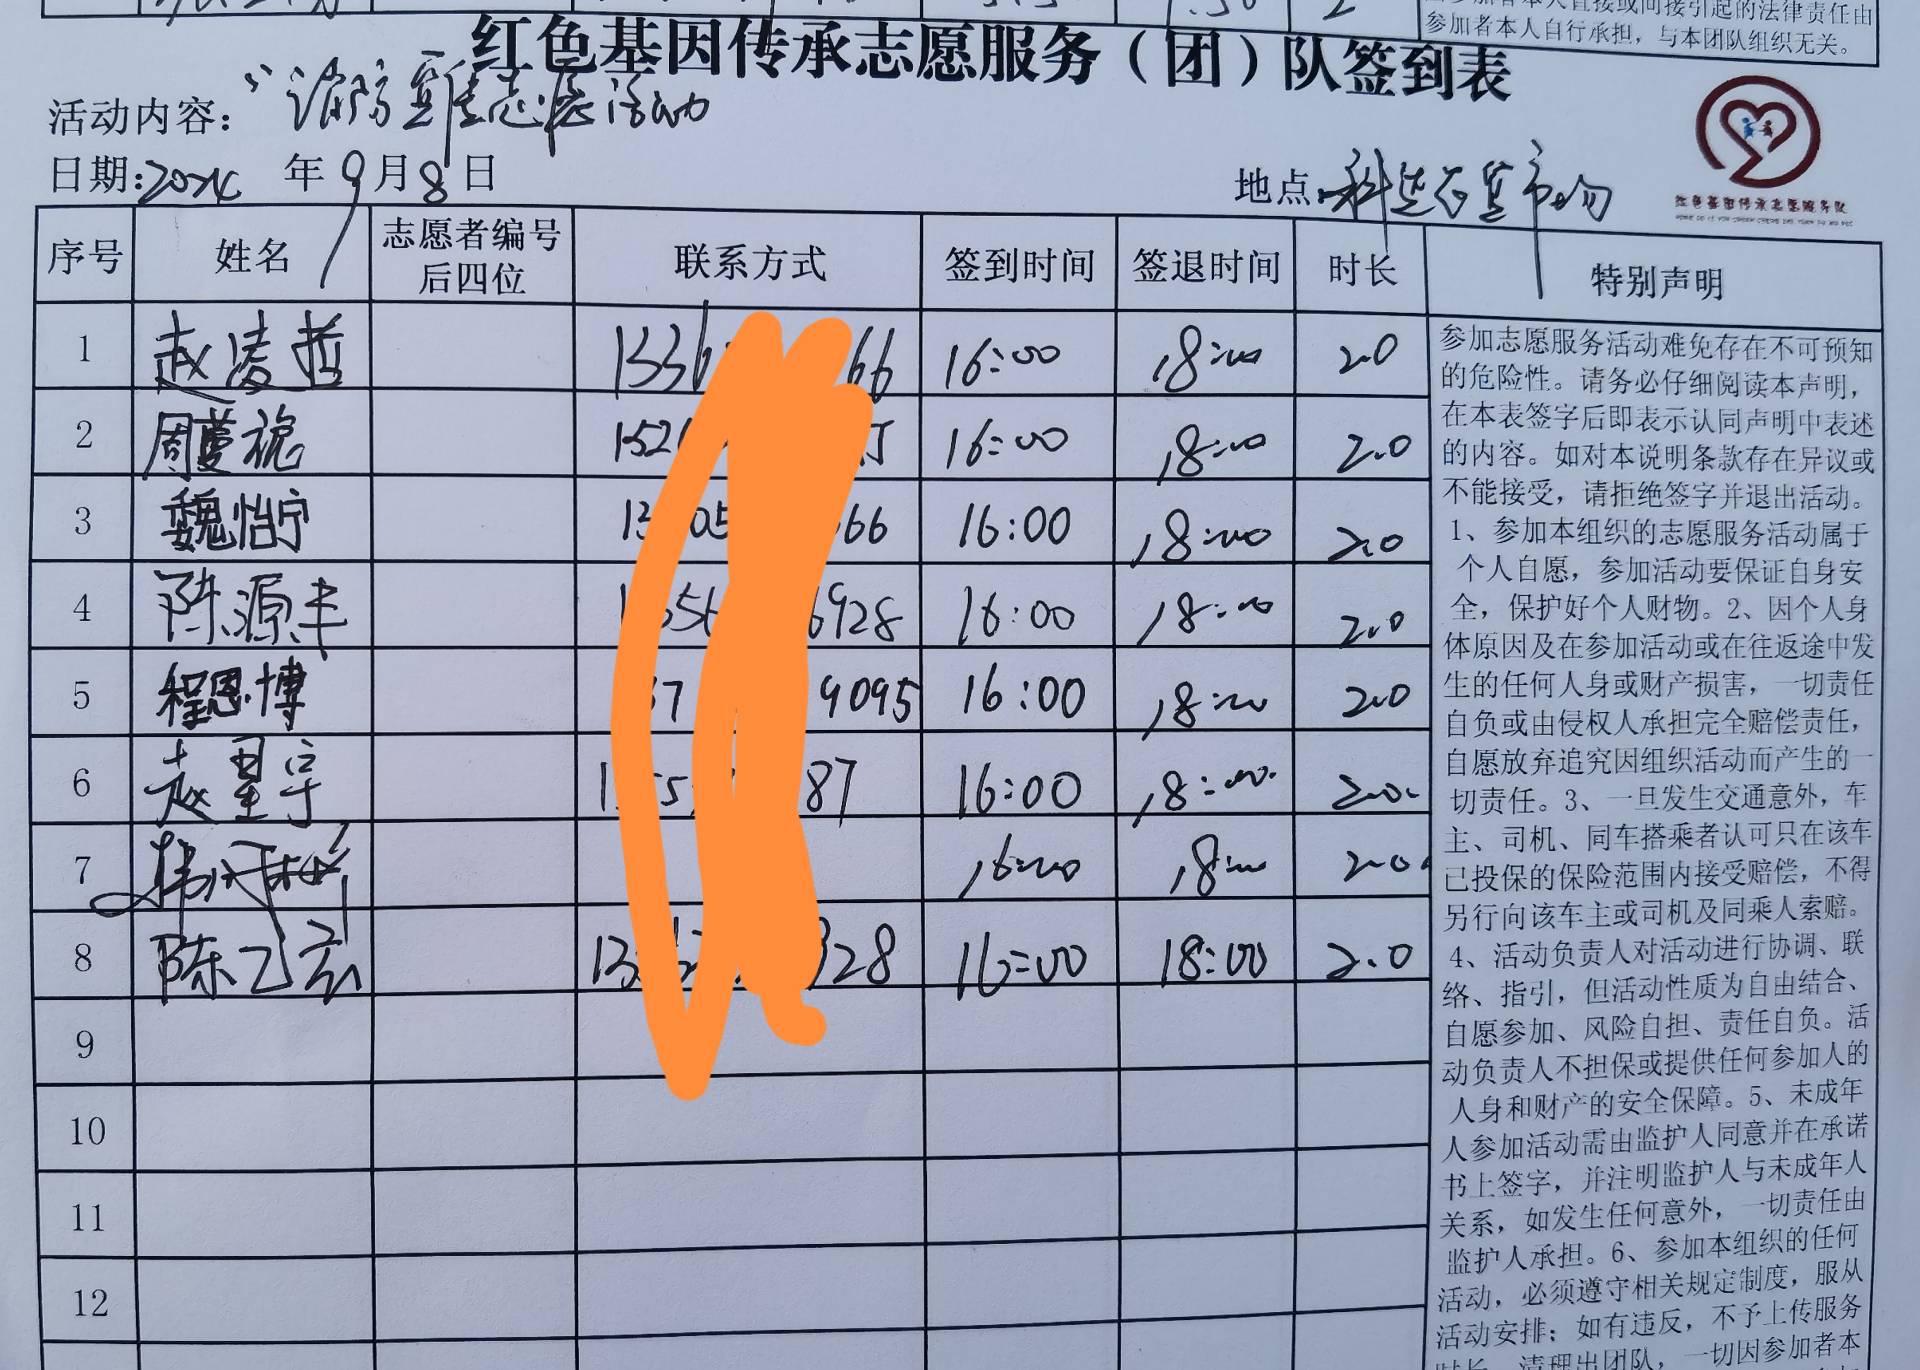 参加者本人自行承担，与本团队组织无关。
红色基因传承志愿服务（团）队签到表
活动内容： 志愿活动
日期:2024 年9月8日
地点: 市场
红色基因传承志愿服务队
序号 姓名 志愿者编号后四位 联系方式 签到时间 签退时间 时长 特别声明
1 赵凌哲 1336 66 16:00 18:00 2.0
2 周蔓旎 152 16:00 18:00 2.0
3 魏怡宁 66 16:00 18:00 2.0
4 陈源丰 6928 16:00 18:00 2.0
5 程恩博 37 9095 16:00 18:00 2.0
6 赵星宇 87 16:00 18:00 2.0
7 16:00 18:00 2.0
8 陈乙宏 13 28 16:00 18:00 2.0
9
10
11
12
参加志愿服务活动难免存在不可预知
的危险性。请务必仔细阅读本声明，
在本表签字后即表示认同声明中表述
的内容。如对本说明条款存在异议或
不能接受，请拒绝签字并退出活动。
1、参加本组织的志愿服务活动属于
个人自愿，参加活动要保证自身安
全，保护好个人财物。2、因个人身
体原因及在参加活动或在往返途中发
生的任何人身或财产损害，一切责任
自负或由侵权人承担完全赔偿责任，
自愿放弃追究因组织活动而产生的一
切责任。3、一旦发生交通意外，车
主、司机、同车搭乘者认可只在该车
已投保的保险范围内接受赔偿，不得
另行向该车主或司机及同乘人索赔。
4、活动负责人对活动进行协调、联
络、指引，但活动性质为自由结合、
自愿参加、风险自担、责任自负。活
动负责人不担保或提供任何参加人的
人身和财产的安全保障。5、未成年
人参加活动需由监护人同意并在承诺
书上签字，并注明监护人与未成年人
关系，如发生任何意外，一切责任由
监护人承担。6、参加本组织的任何
活动，必须遵守相关规定制度，服从
活动安排；如有违反，不予上传服务
时长，清理出团队，一切因参加者本